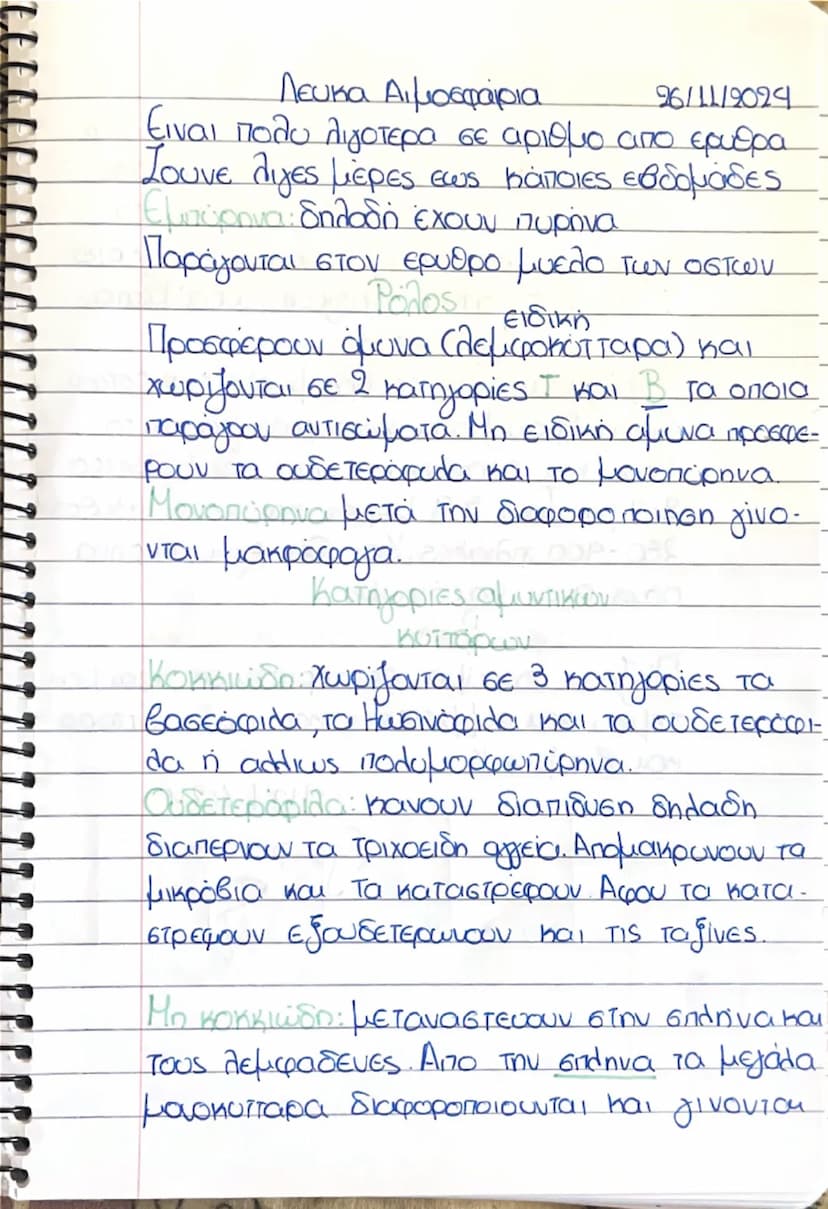 Λευκα Αιμοσφάρια 26/11/2024
Ειναι πολυ λιγοτερα σε αριθμο απο ερυθρα
Ζουνε λιγες μέρες εως κάποιες εβδομάδες
Εμπύρηνα: δηλαδή έχουν πυρήνα
Παράγονται στον ερυθρο μυελο των οστων
Ρόλος
ειδική
Προσφέρουν άμυνα (λεμφοκύτταρα) και
χωρίζονται σε 2 κατηγορίες Τ και Β τα οποια
παράγουν αντισώματα. Μη ειδική αμυνα προσφε-
ρουν τα ουδετερόφυλα και το μονοπύρηνα.
Μονοπύρηνα μετά την διαφοροποιηση γίνο-
νται μακρόφαγα.
Κατηγορίες αμυντικων
κυττάρων
Κοκκιώδη: Χωρίζονται σε 3 κατηγορίες τα
βασεόφιλα, τα Ηωσινόφιλα και τα ουδετερόφι-
λα ή αλλιως πολυμορφωπύρηνα.
Ουδετερόφιλα: κανουν διαπιδυση δηλαδη
διαπερνουν τα τριχοειδη αγγεία. Απομακρυνουν τα
μικρόβια και τα καταστρέφουν. Αφου τα κατα-
στρεφουν εξουδετερωνουν και τις τοξίνες.
Μη κοκκιώδη: μεταναστευουν στην σπλήνα και
τους λεμφαδενες. Απο την σπληνα τα μεγάλα
διαφοροποιουνται και γινονται